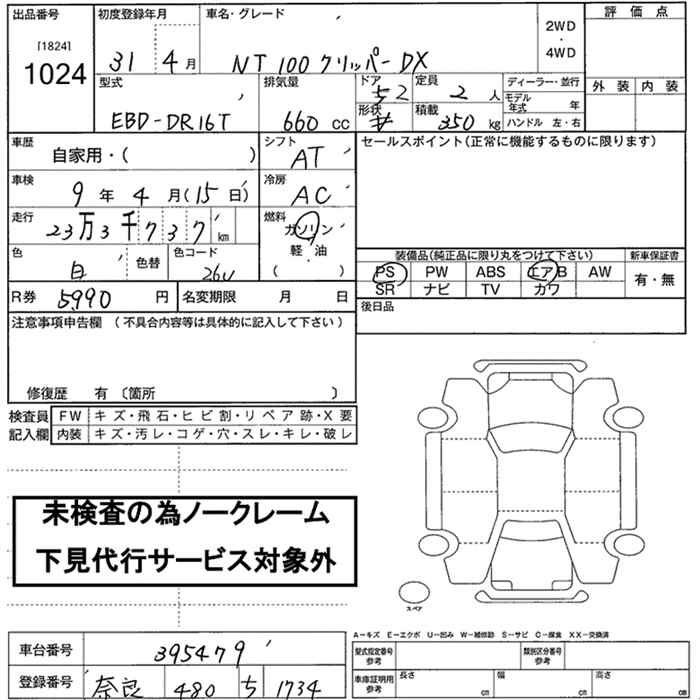 出品番号 初度登録年月 車名・グレード 評価点
[1824] 2WD
1024 31 4月 NT100クリッパーDX ・
4WD
外装 内装
型式 排気量 ドア 定員 ディーラー・並行
52 2人 モデル年式 年
EBD-DR16T 660cc 形状 積載 350kg ハンドル 左・右
車歴 自家用・( ) シフト AT セールスポイント(正常に機能するものに限ります)
車検 9年4月(15日) 冷房 AC
走行 23万3千737km 燃料 ガソリン
軽・油
( )
色 白 色替 色コード 26U
装備品(純正品に限り丸をつけて下さい) 新車保証書
PS PW ABS エアB AW 有・無
SR ナビ TV カワ
R券 5990円 名変期限 月 日 後日品
注意事項申告欄 (不具合内容等は具体的に記入して下さい)
修復歴 有 〔箇所 〕
検査員 FW キズ・飛石・ヒビ割・リペア跡・X要
記入欄 内装 キズ・汚レ・コゲ・穴・スレ・キレ・破レ
未検査の為ノークレーム
下見代行サービス対象外
スペア
A-キズ E-エクボ U-凹み W-補修跡 S-サビ C-腐食 XX-交換済
車台番号 395479 型式指定番号 参考 類別区分番号 参考
登録番号 奈良 480 ち 1734 車庫証明用 参考 長さ cm 幅 cm 高さ cm